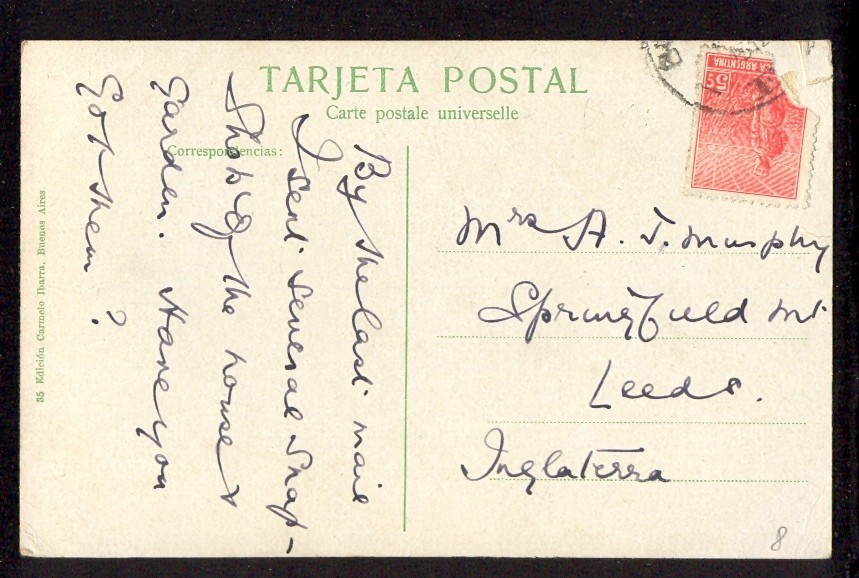 TARJETA POSTAL
Carte postale universelle
Correspondencias:
By the last mail
I sent several snap-
shots of the house &
garden. Have you
got them?
Mrs A. J. Murphy
Springfield Mt
Leeds.
Inglaterra
5c
CA ARGENTINA
35 Edición Carmelo Ibarra. Buenos Aires
8